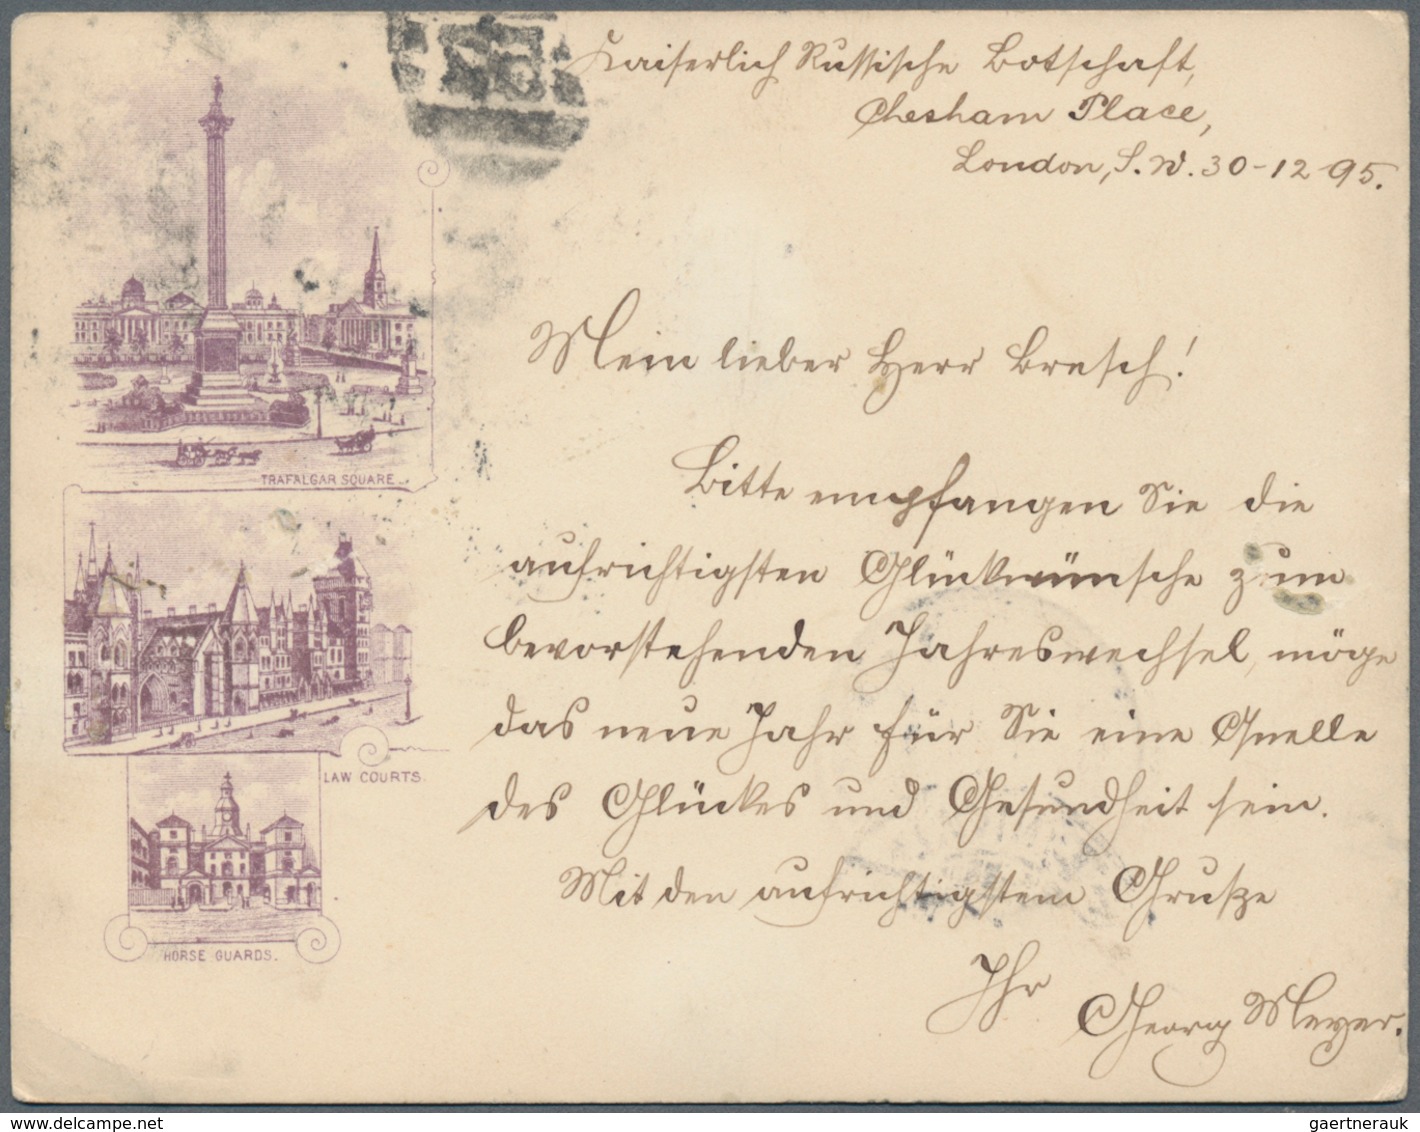 Kaiserlich Russische Botschaft,
Chesham Place,
London, S.W. 30-12 95.
Mein lieber Herr Bresch!
Bitte empfangen Sie die
aufrichtigsten Glückwünsche zum
bevorstehenden Jahreswechsel, möge
das neue Jahr für Sie eine Quelle
des Glückes und Gesundheit sein.
Mit den aufrichtigstem Grusze
Ihr
Georg Meyer.
TRAFALGAR SQUARE.
LAW COURTS.
HORSE GUARDS.
delcampe.net
gaertnerauk